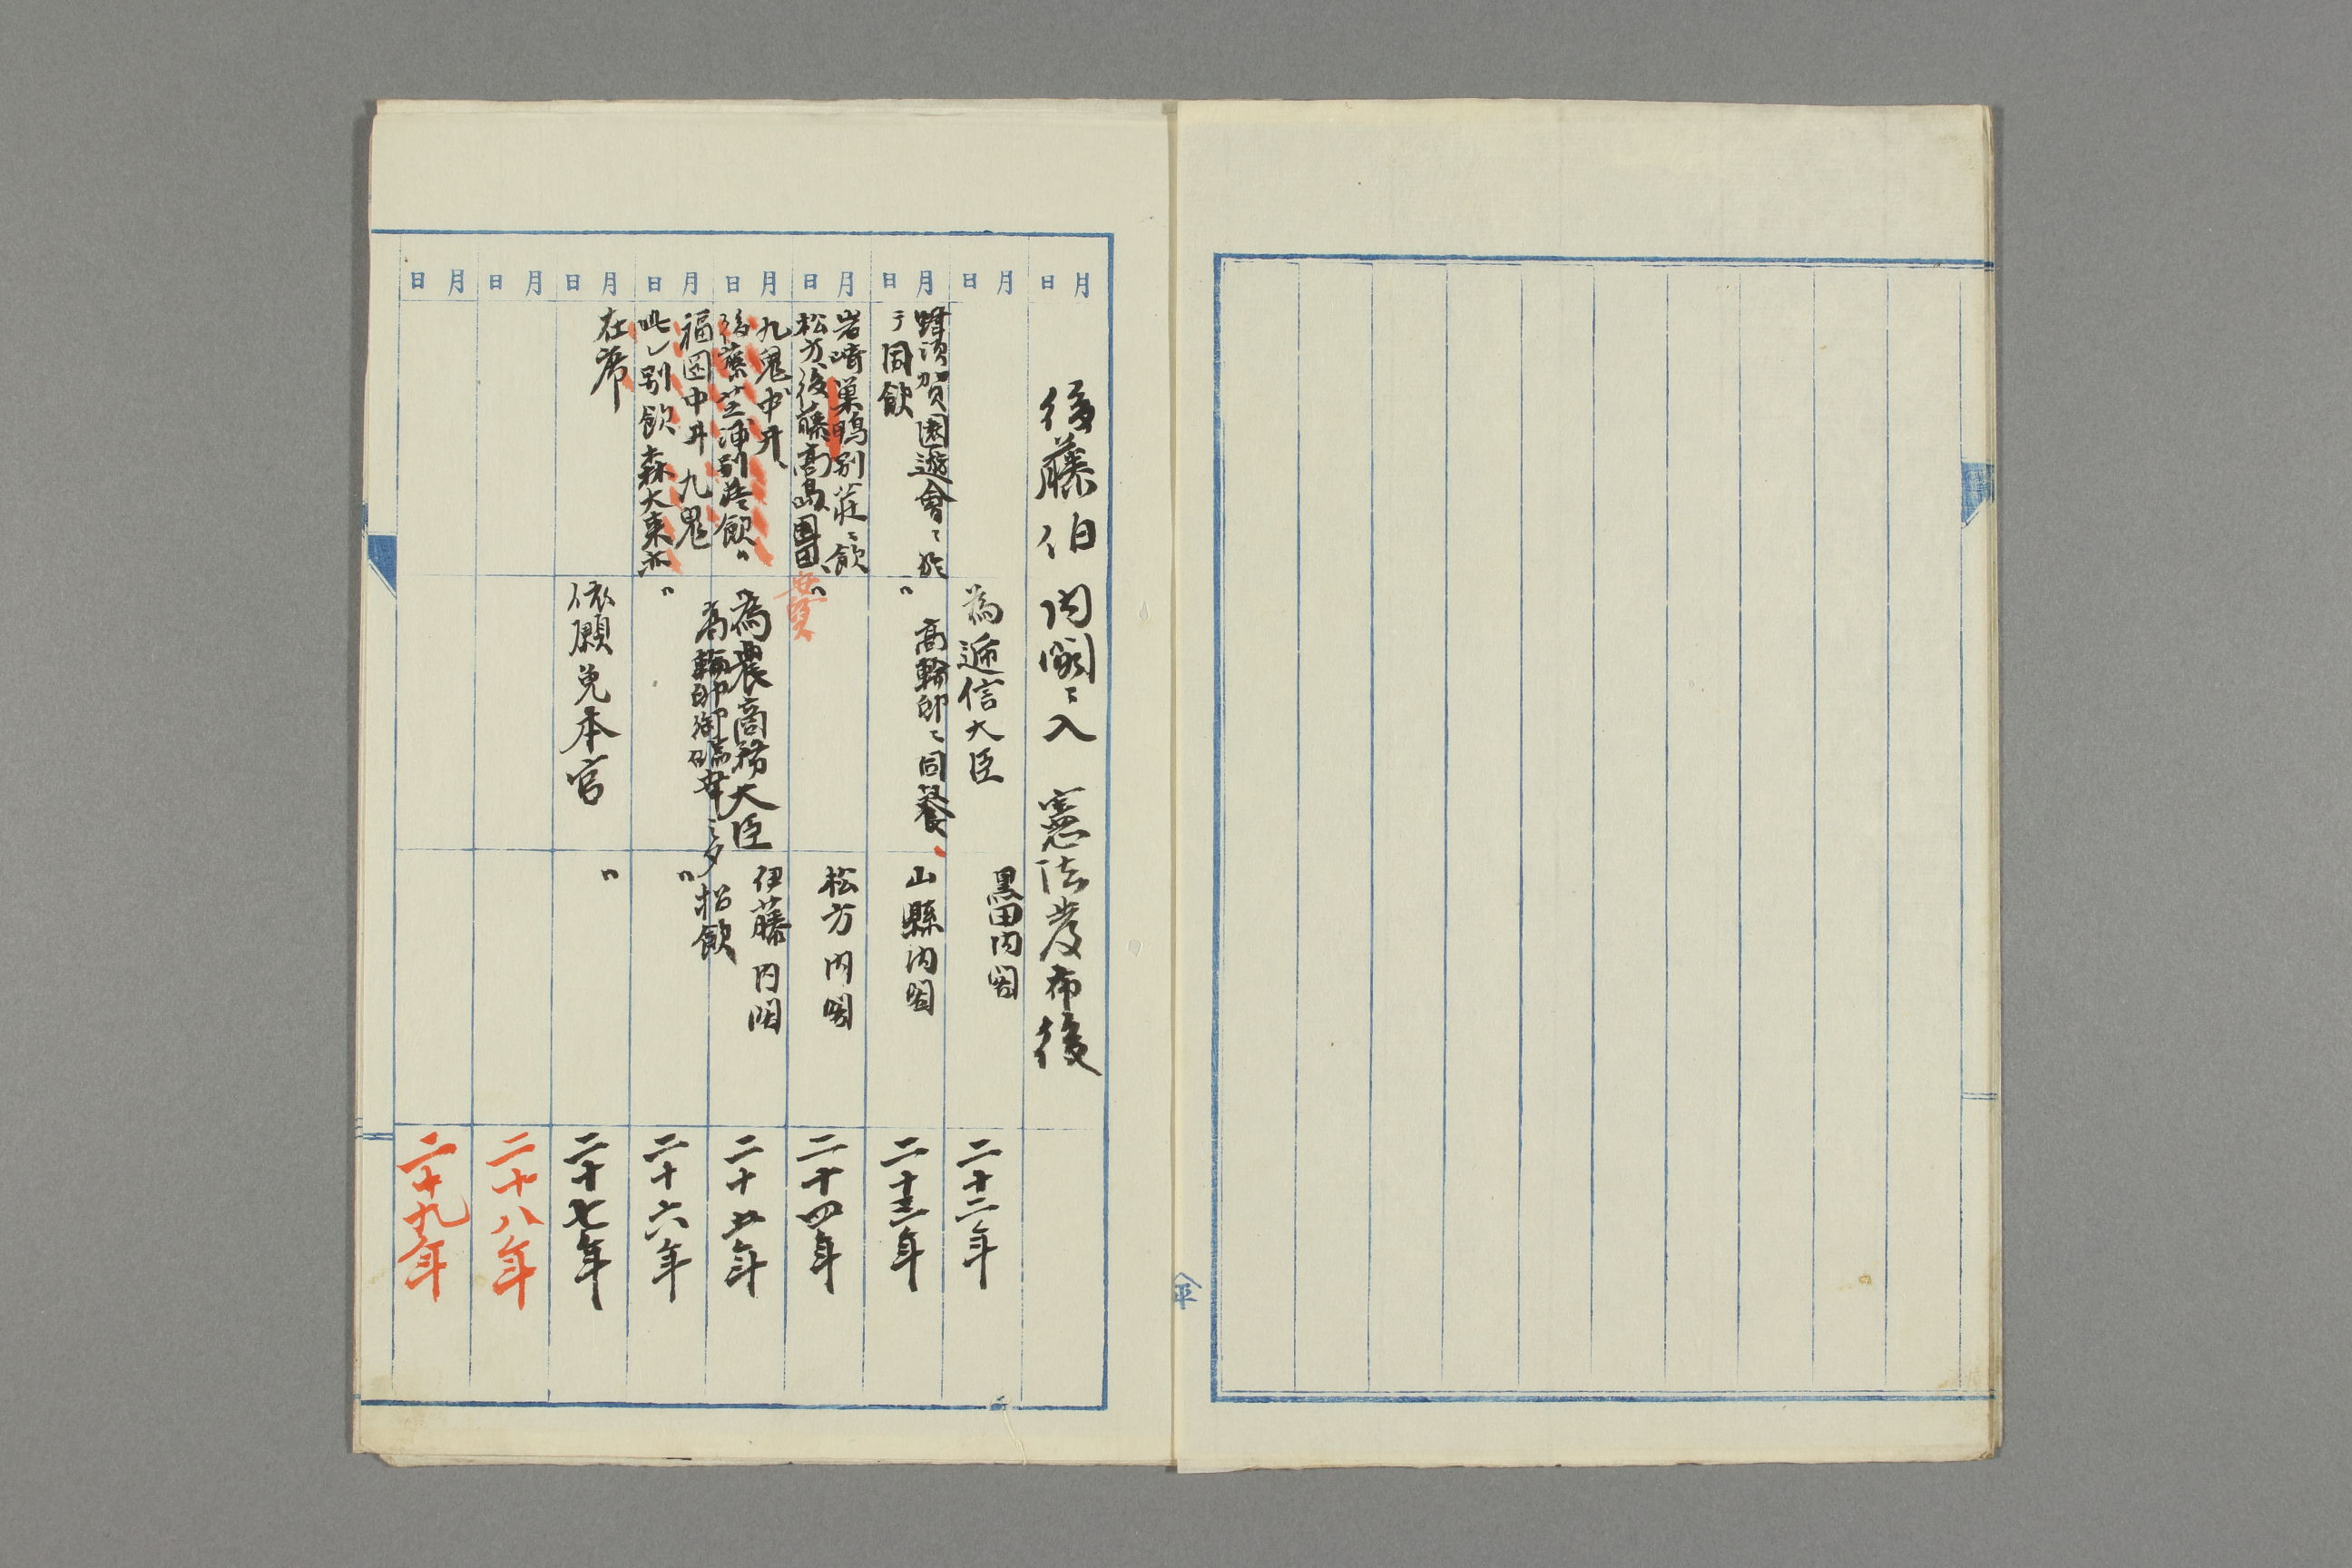 後藤伯内閣ニ入 憲法発布後
月日
月日
月日
月日
月日
月日
月日
月日
月日
為逓信大臣
黒田内閣
二十二年
蜂須賀園遊會ニ於
テ同飲
〃
高輪邸ニ同養
山縣内閣
二十三年
岩崎巣鴨別荘ニ飲
松方後藤高島
〃
松方内閣
二十四年
九鬼中井
後藤芝浦別荘飲〃
為農商務大臣
高輪邸御臨幸
招飲
伊藤内閣
二十五年
福岡中井九鬼
別飲 森大東亦
〃
〃
二十六年
在席
依願免本官
〃
二十七年
二十八年
二十九年